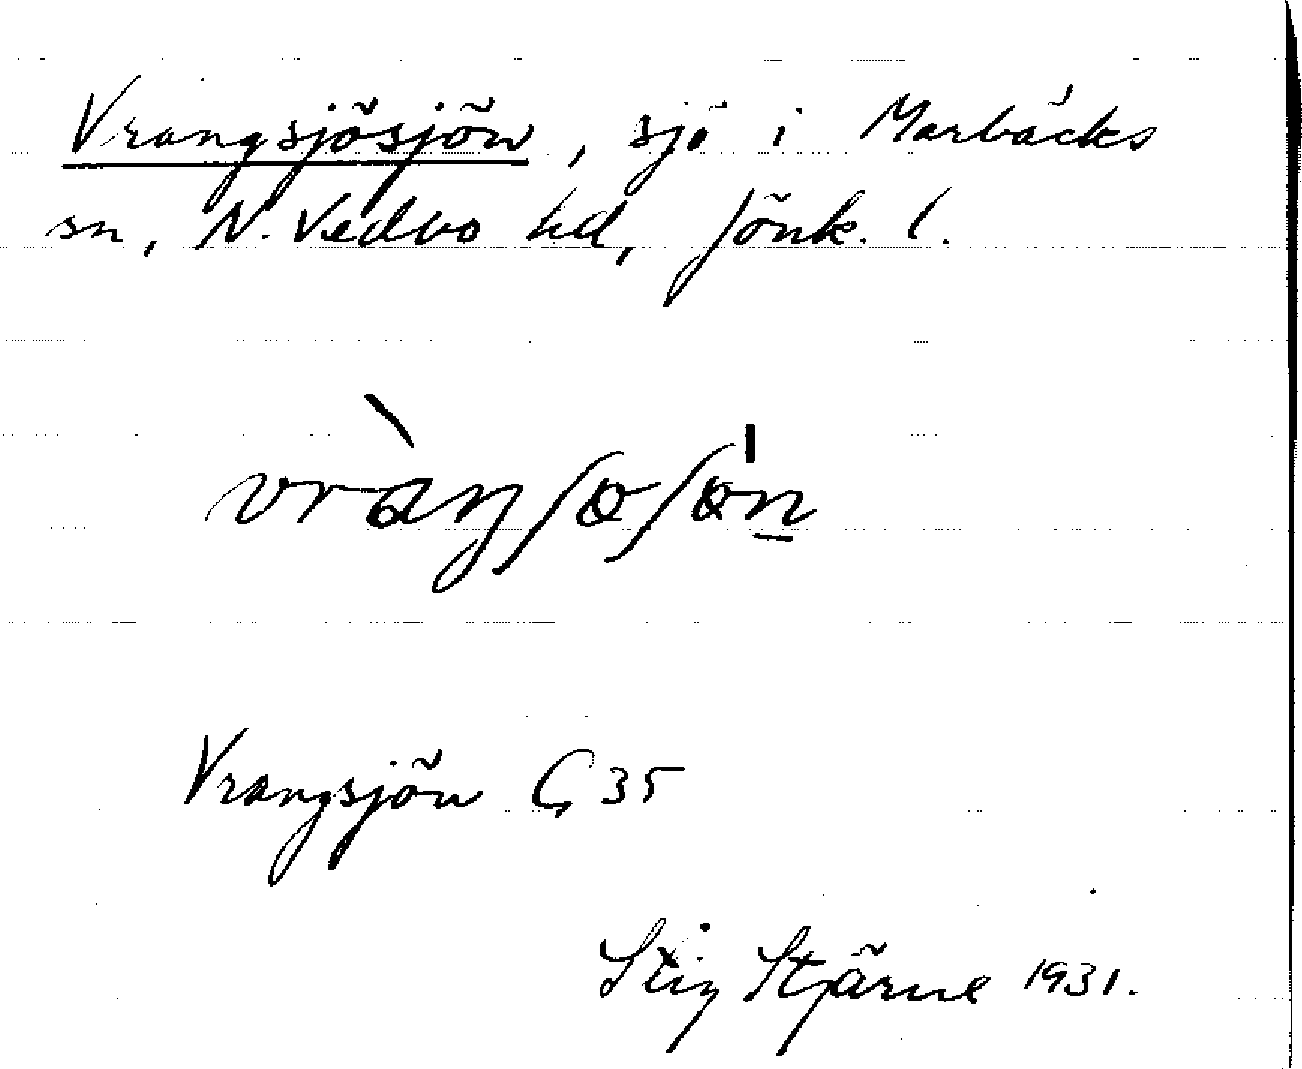 Vrangsjösjön, sjö i Marbäcks
sn, N. Vedbo hd, Jönk. l.
vràŋʃɵʃɵ̍n̠
Vrangsjön G 35
Stig Stjärne 1931.